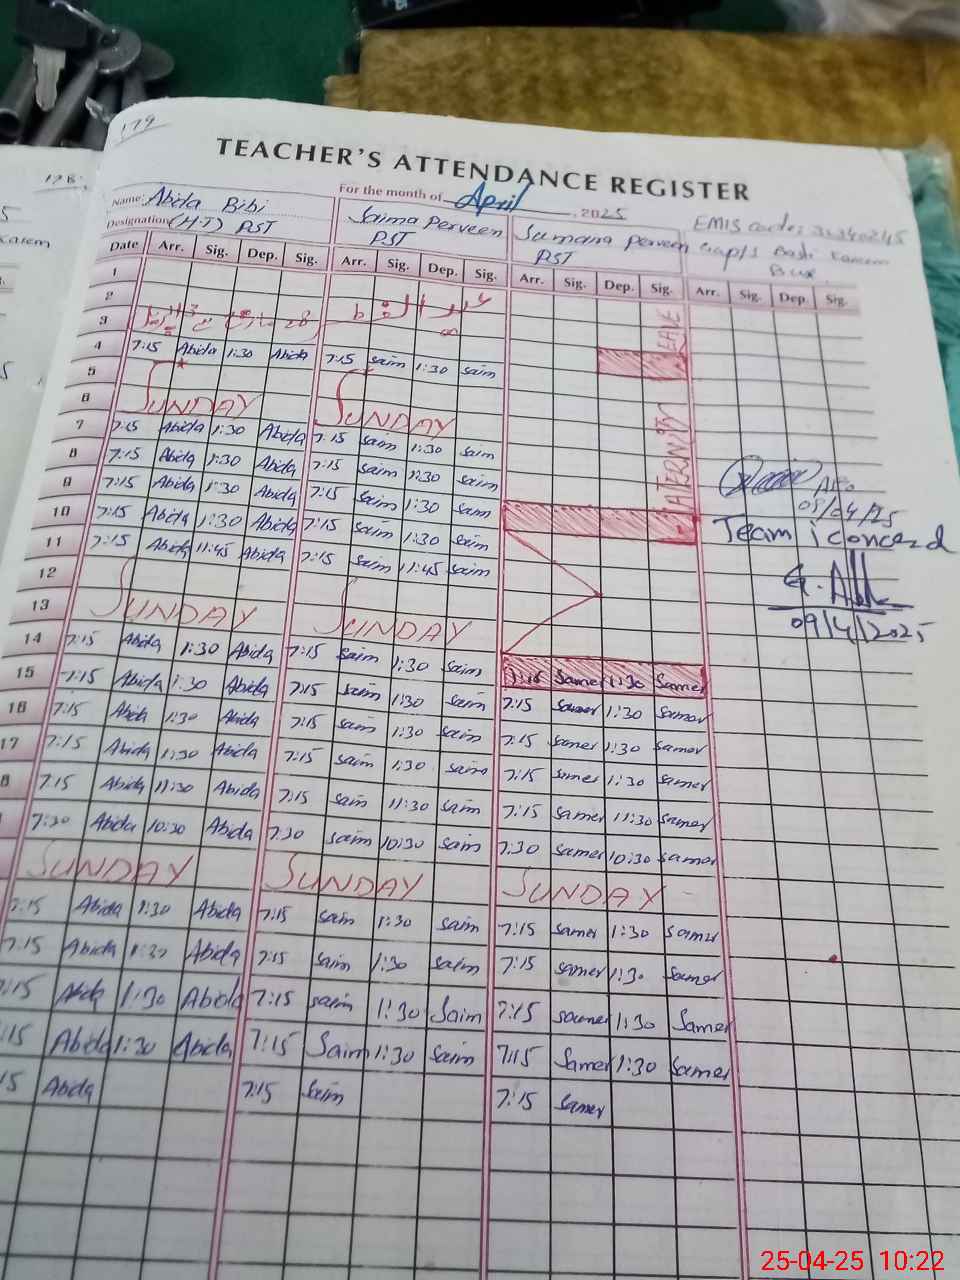 179
TEACHER'S ATTENDANCE REGISTER
For the month of April, 2025
Name: Abida Bibi
Designation (H.T) PST
Saima Perveen
PST
Sumana Perveen
PST
EMIS code:
Date Arr. Sig. Dep. Sig. Arr. Sig. Dep. Sig. Arr. Sig. Dep. Sig. Arr. Sig. Dep. Sig.
1
2
3
4 7:15 Abida 1:30 Abida 7:15 Saim 1:30 Saim
5
6 SUNDAY SUNDAY
7 7:15 Abida 1:30 Abida 7:15 Saim 1:30 Saim
8 7:15 Abida 1:30 Abida 7:15 Saim 1:30 Saim
9 7:15 Abida 1:30 Abida 7:15 Saim 1:30 Saim
10 7:15 Abida 1:30 Abida 7:15 Saim 1:30 Saim
11 7:15 Abida 11:45 Abida 7:15 Saim 11:45 Saim
12
13 SUNDAY SUNDAY
14 7:15 Abida 1:30 Abida 7:15 Saim 1:30 Saim 7:15 Samer 1:30 Samer
15 7:15 Abida 1:30 Abida 7:15 Saim 1:30 Saim 7:15 Samer 1:30 Samer
16 7:15 Abida 1:30 Abida 7:15 Saim 1:30 Saim 7:15 Samer 1:30 Samer
17 7:15 Abida 1:30 Abida 7:15 Saim 1:30 Saim 7:15 Samer 1:30 Samer
8 7:15 Abida 11:30 Abida 7:15 Saim 11:30 Saim 7:15 Samer 11:30 Samer
7:30 Abida 10:30 Abida 7:30 Saim 10:30 Saim 7:30 Samer 10:30 Samer
SUNDAY SUNDAY SUNDAY
7:15 Abida 1:30 Abida 7:15 Saim 1:30 Saim 7:15 Samer 1:30 Samer
7:15 Abida 1:30 Abida 7:15 Saim 1:30 Saim 7:15 Samer 1:30 Samer
:15 Abida 1:30 Abida 7:15 Saim 1:30 Saim 7:15 Samer 1:30 Samer
:15 Abida 1:30 Abida 7:15 Saim 1:30 Saim 7:15 Samer 1:30 Samer
15 Abida 7:15 Saim 7:15 Samer
MATERNITY LEAVE
08/04/25
Team
09/4/2025
25-04-25 10:22